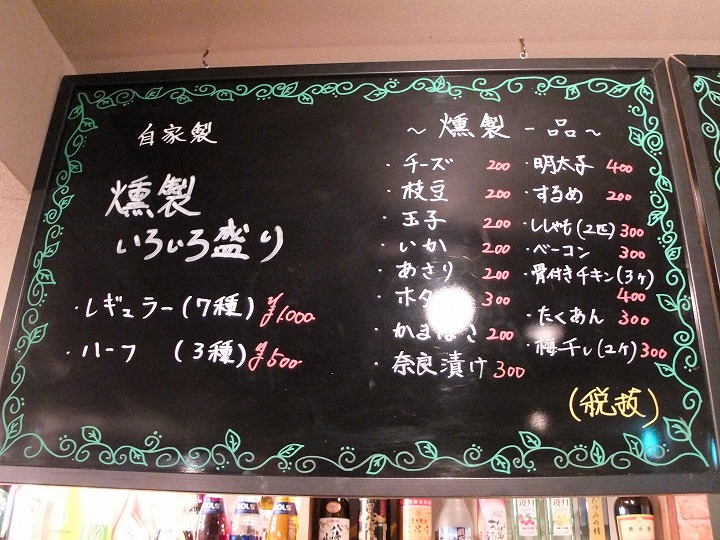 自家製
燻製
いろいろ盛り
・レギュラー(7種)¥1000
・ハーフ (3種)¥500
~燻製一品~
・チーズ 200
・枝豆 200
・玉子 200
・いか 200
・あさり 200
・ホタ 300
・かまぼこ 200
・奈良漬け 300
・明太子 400
・するめ 200
・ししゃも(2匹) 300
・ベーコン 300
・骨付きチキン(3ヶ)
400
・たくあん 300
・梅干し(2ケ) 300
(税抜)